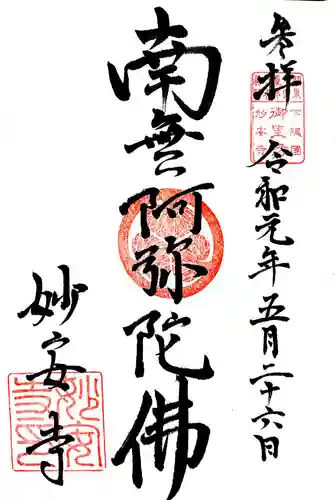 参拝 令和元年五月二十六日
南無阿弥陀佛
妙安寺
妙安
寺印